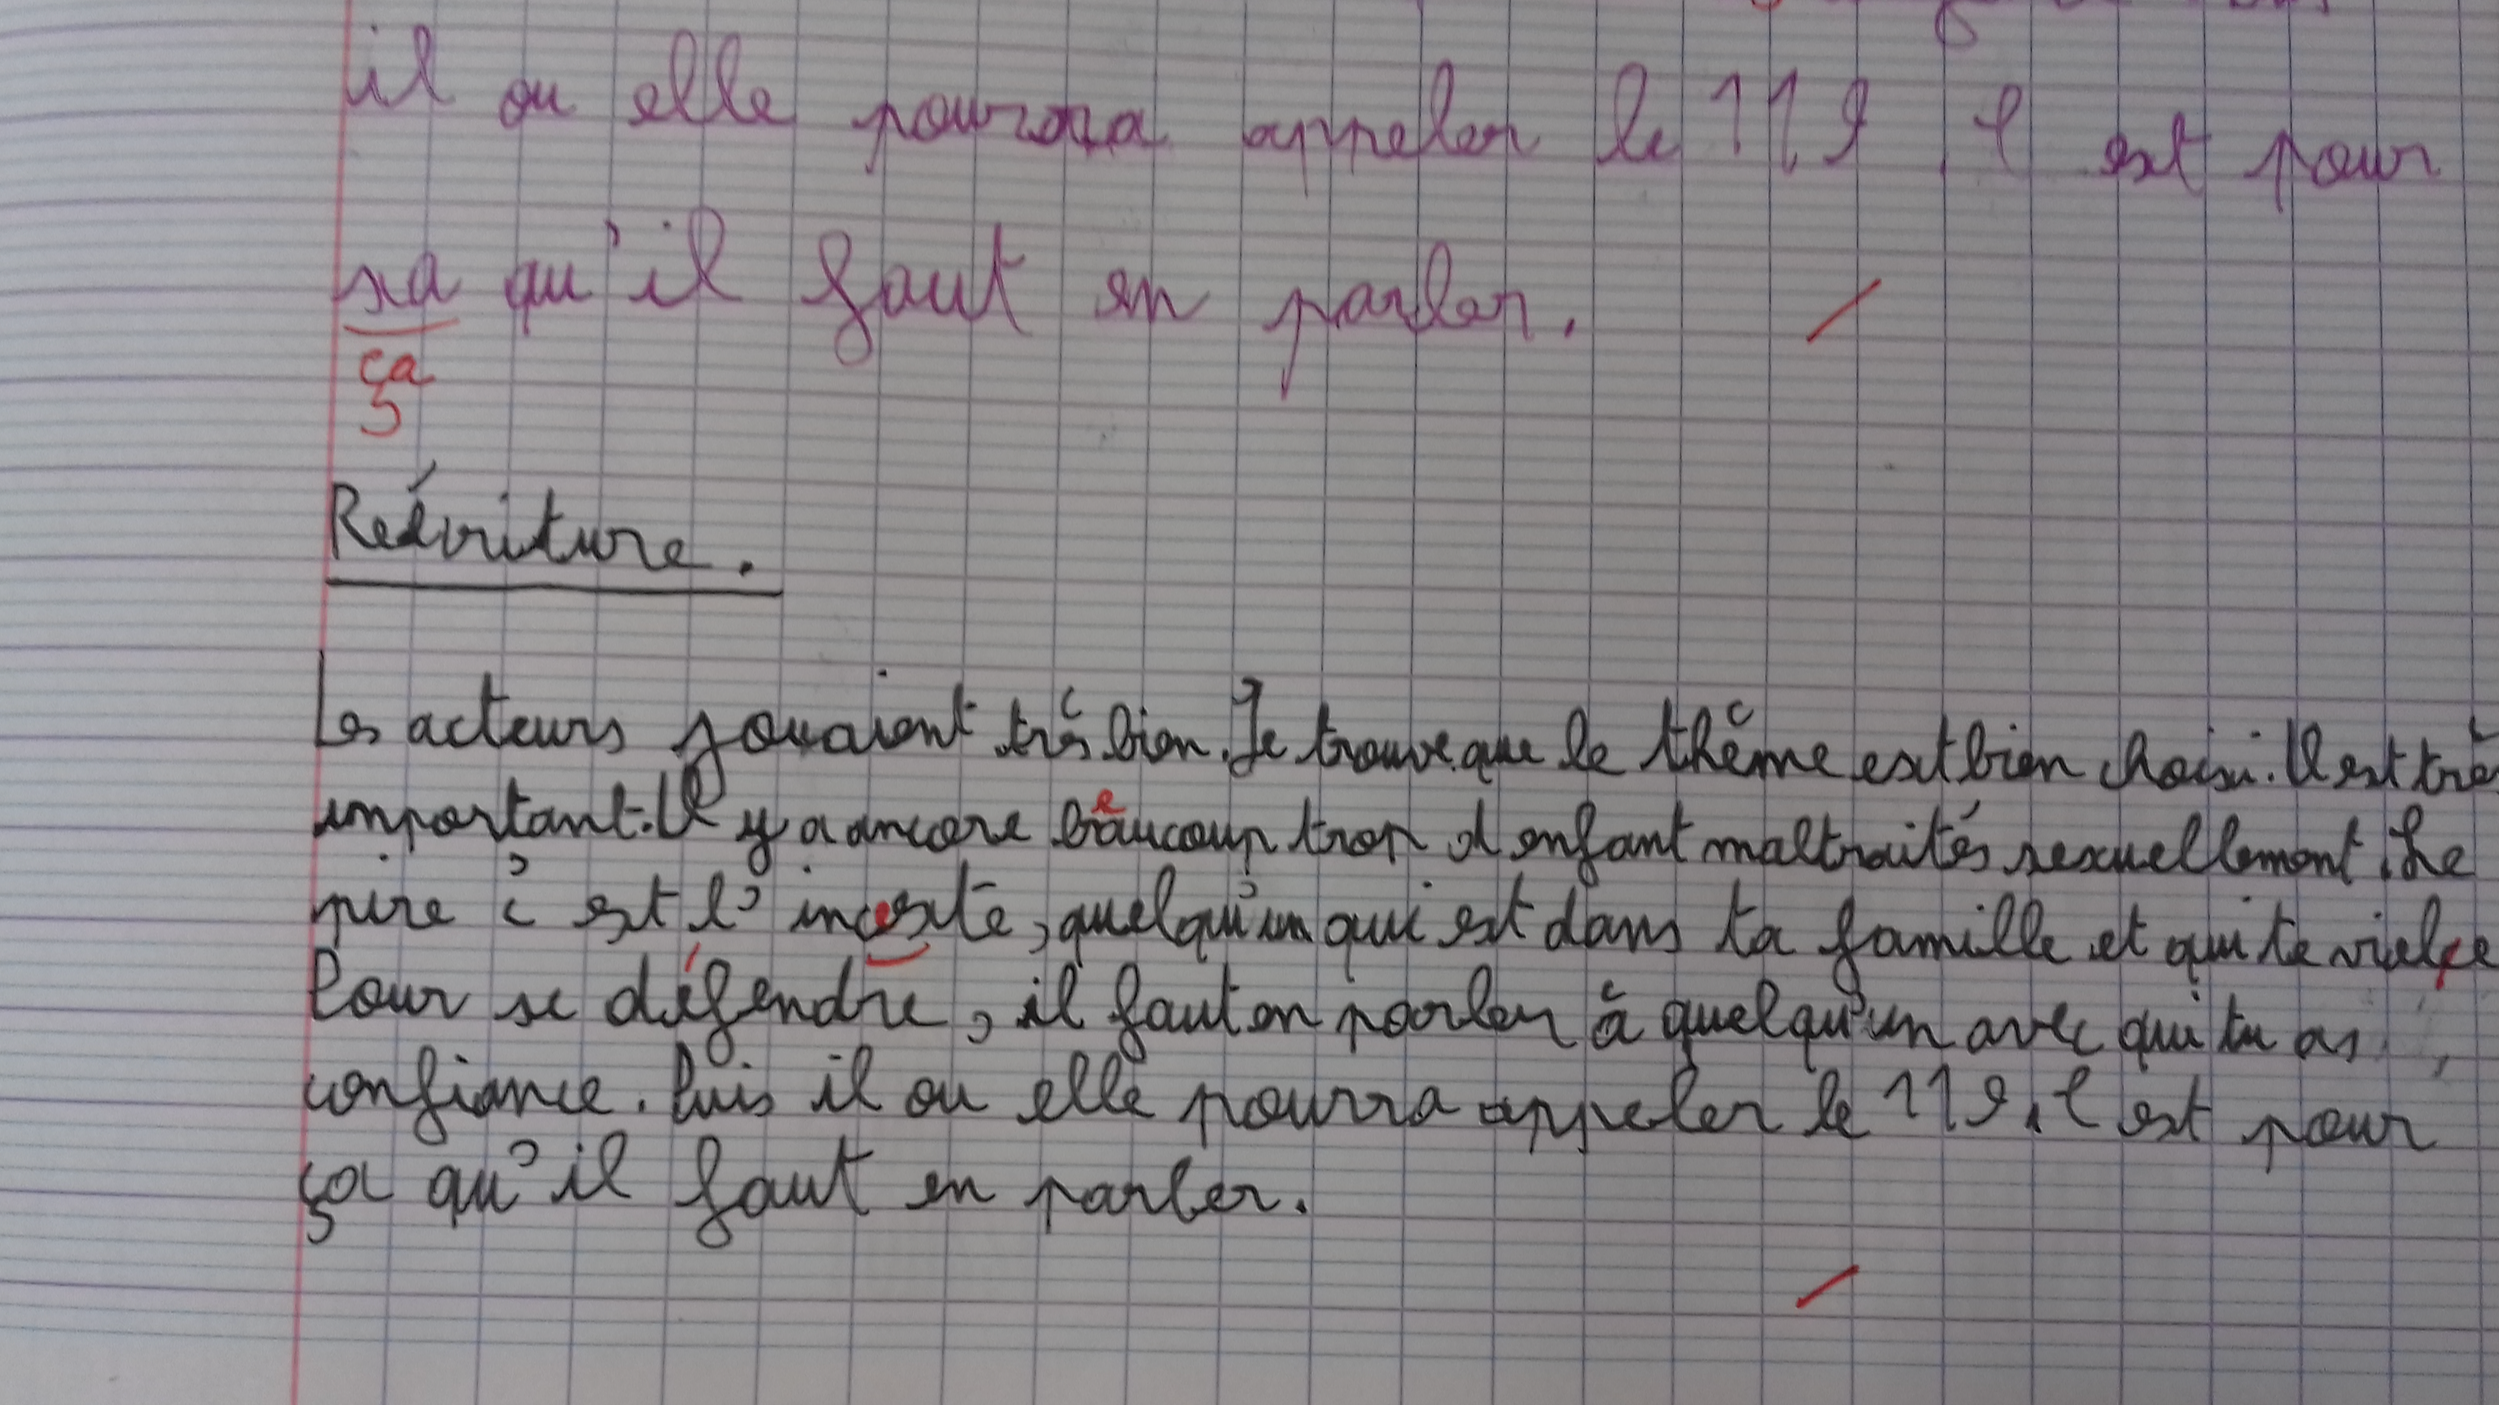 il ou elle pourra appeler le 119, c est pour
sa qu'il faut en parler.
ça
Reécriture.
Les acteurs jouaient très bien. Je trouve que le thème est bien choisi. Il est très
important. Il y a encore beaucoup trop d enfant maltraités sexuellement. Le
pire c'est l'inceste, quelqu'un qui est dans ta famille et qui te viole
Pour se défendre, il faut en parler à quelqu'un avec qui tu as
confiance. Puis il ou elle pourra appeler le 119, c est pour
ça qu'il faut en parler.